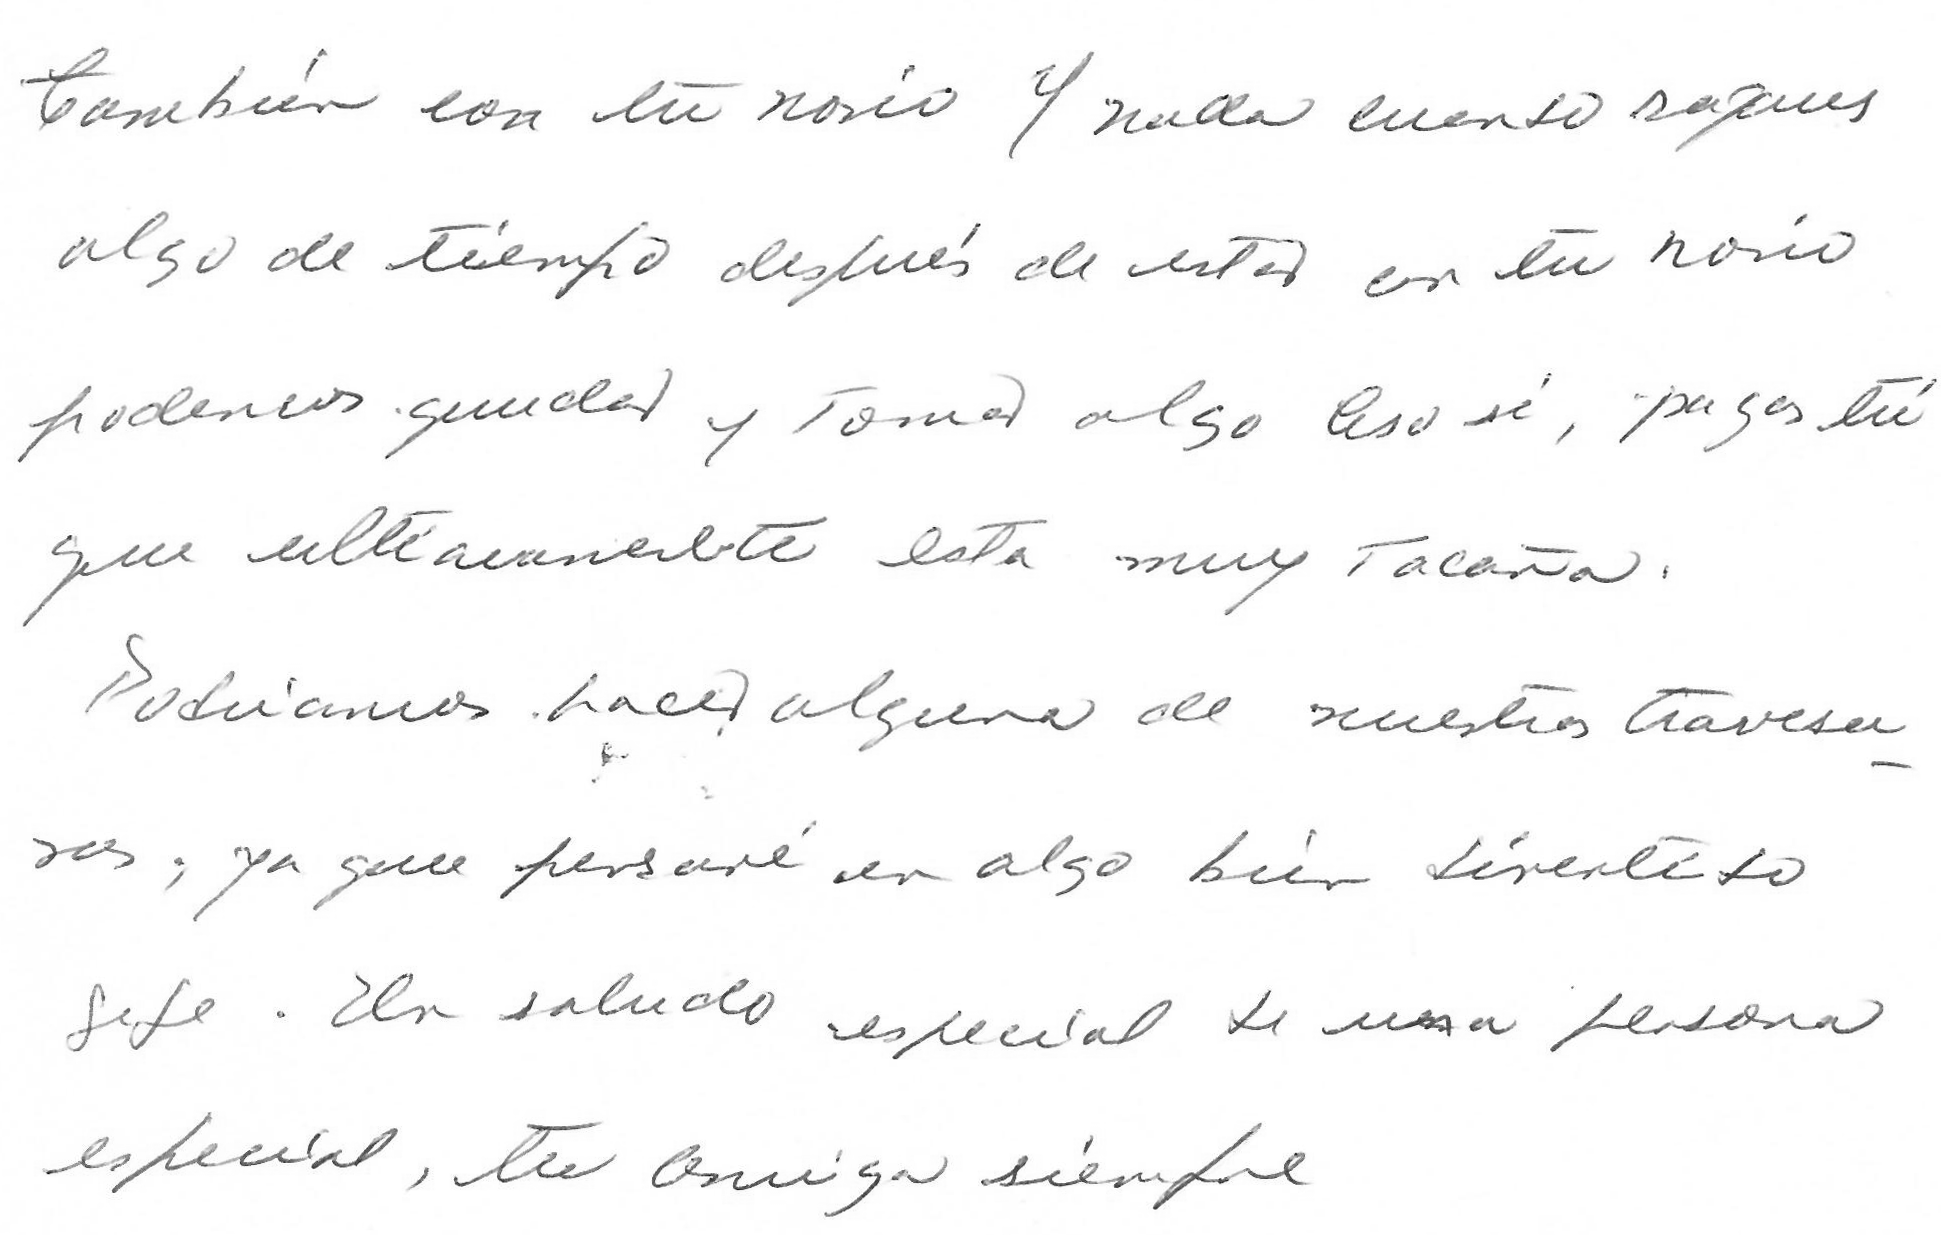 también con tu novio y nada cuando saques
algo de tiempo después de estar con tu novio
podemos quedar y tomar algo eso sí, pagas tú
que ultimamente esta muy tacaña.
Podriamos hacer alguna de nuestras travesu-
ras, ya que pensaré en algo bien divertido
jeje. Un saludo especial de una persona
especial, tu amiga siempre